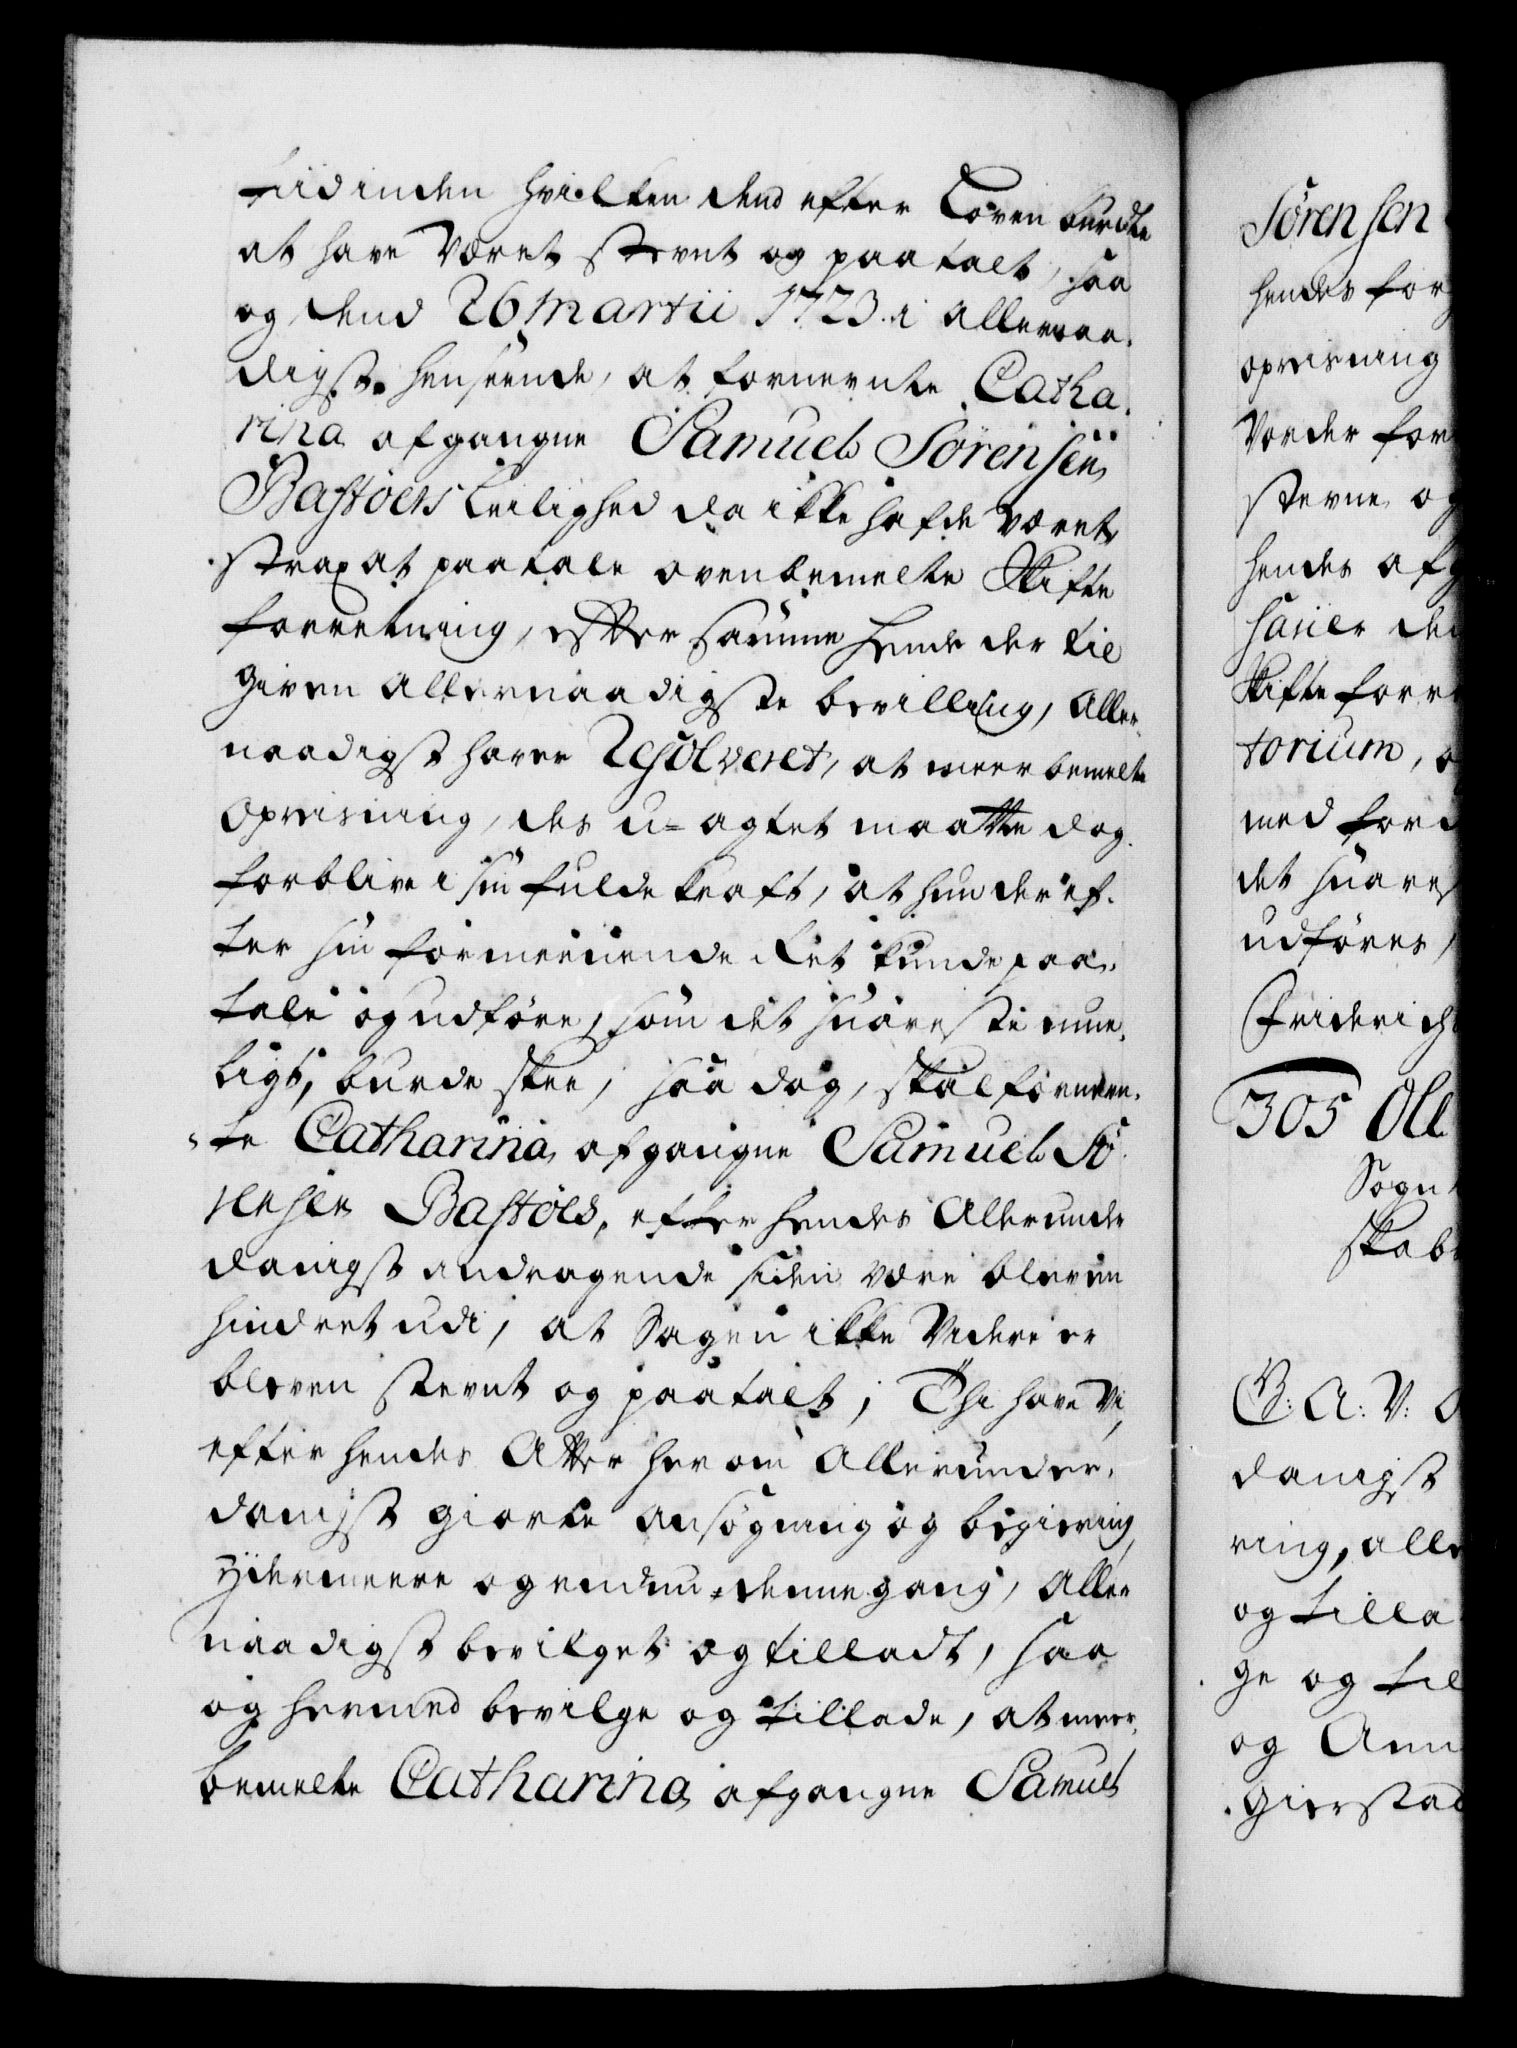 tiid inden hvilken dend efter Loven burdte
at have været stevnt og paatalt, saa
og dend 26 Martii 1723. i allernaa-
digst henseende, at fornevnte Catha-
rina afgangne Samuel Sörensens
Bastöers Leilighed da ikke hafde været
strax at paatale ovenbemelte Skifte
forretning, efter samme hende der til
given allernaadigste bevilling, aller-
naadigst haver Resolveret, at meerbemelte
opreisning, des u-agtet maatte dog
forblive i sin fulde kraft, at hun der ef-
ter sin formeenende Ret kunde paa-
tale og udföre, som det snareste mue-
ligt, burde skee, saa dog, skal fornevn-
te Catharina afgangne Samuel Sö-
rensens Bastöes, efter hendes Allerunder
danigst andragende siden være bleven
hindret udi, at Sagen ikke videre er
bleven stevnt og paatalt; Thi have Vi
efter hendes Atter herom Allerunder-
danigst giorte ansögning og begiering
ydermeere og endnu denne gang, Aller
naadigst bevilget og tilladt, saa
og hermed bevilge og tillade, at meer-
bemelte Catharina afgangne Samuel
Sörensen
hendes for
opreisning
Vorder for
stevne og
hendes afg
Skifte forre
torium,
med for
det snares
udföres,
Friderichs
305 Oll
Sogn
skab
G: A: V:
danigst
ring, alle
og tilla
ge og til
og Ann
Gierstad